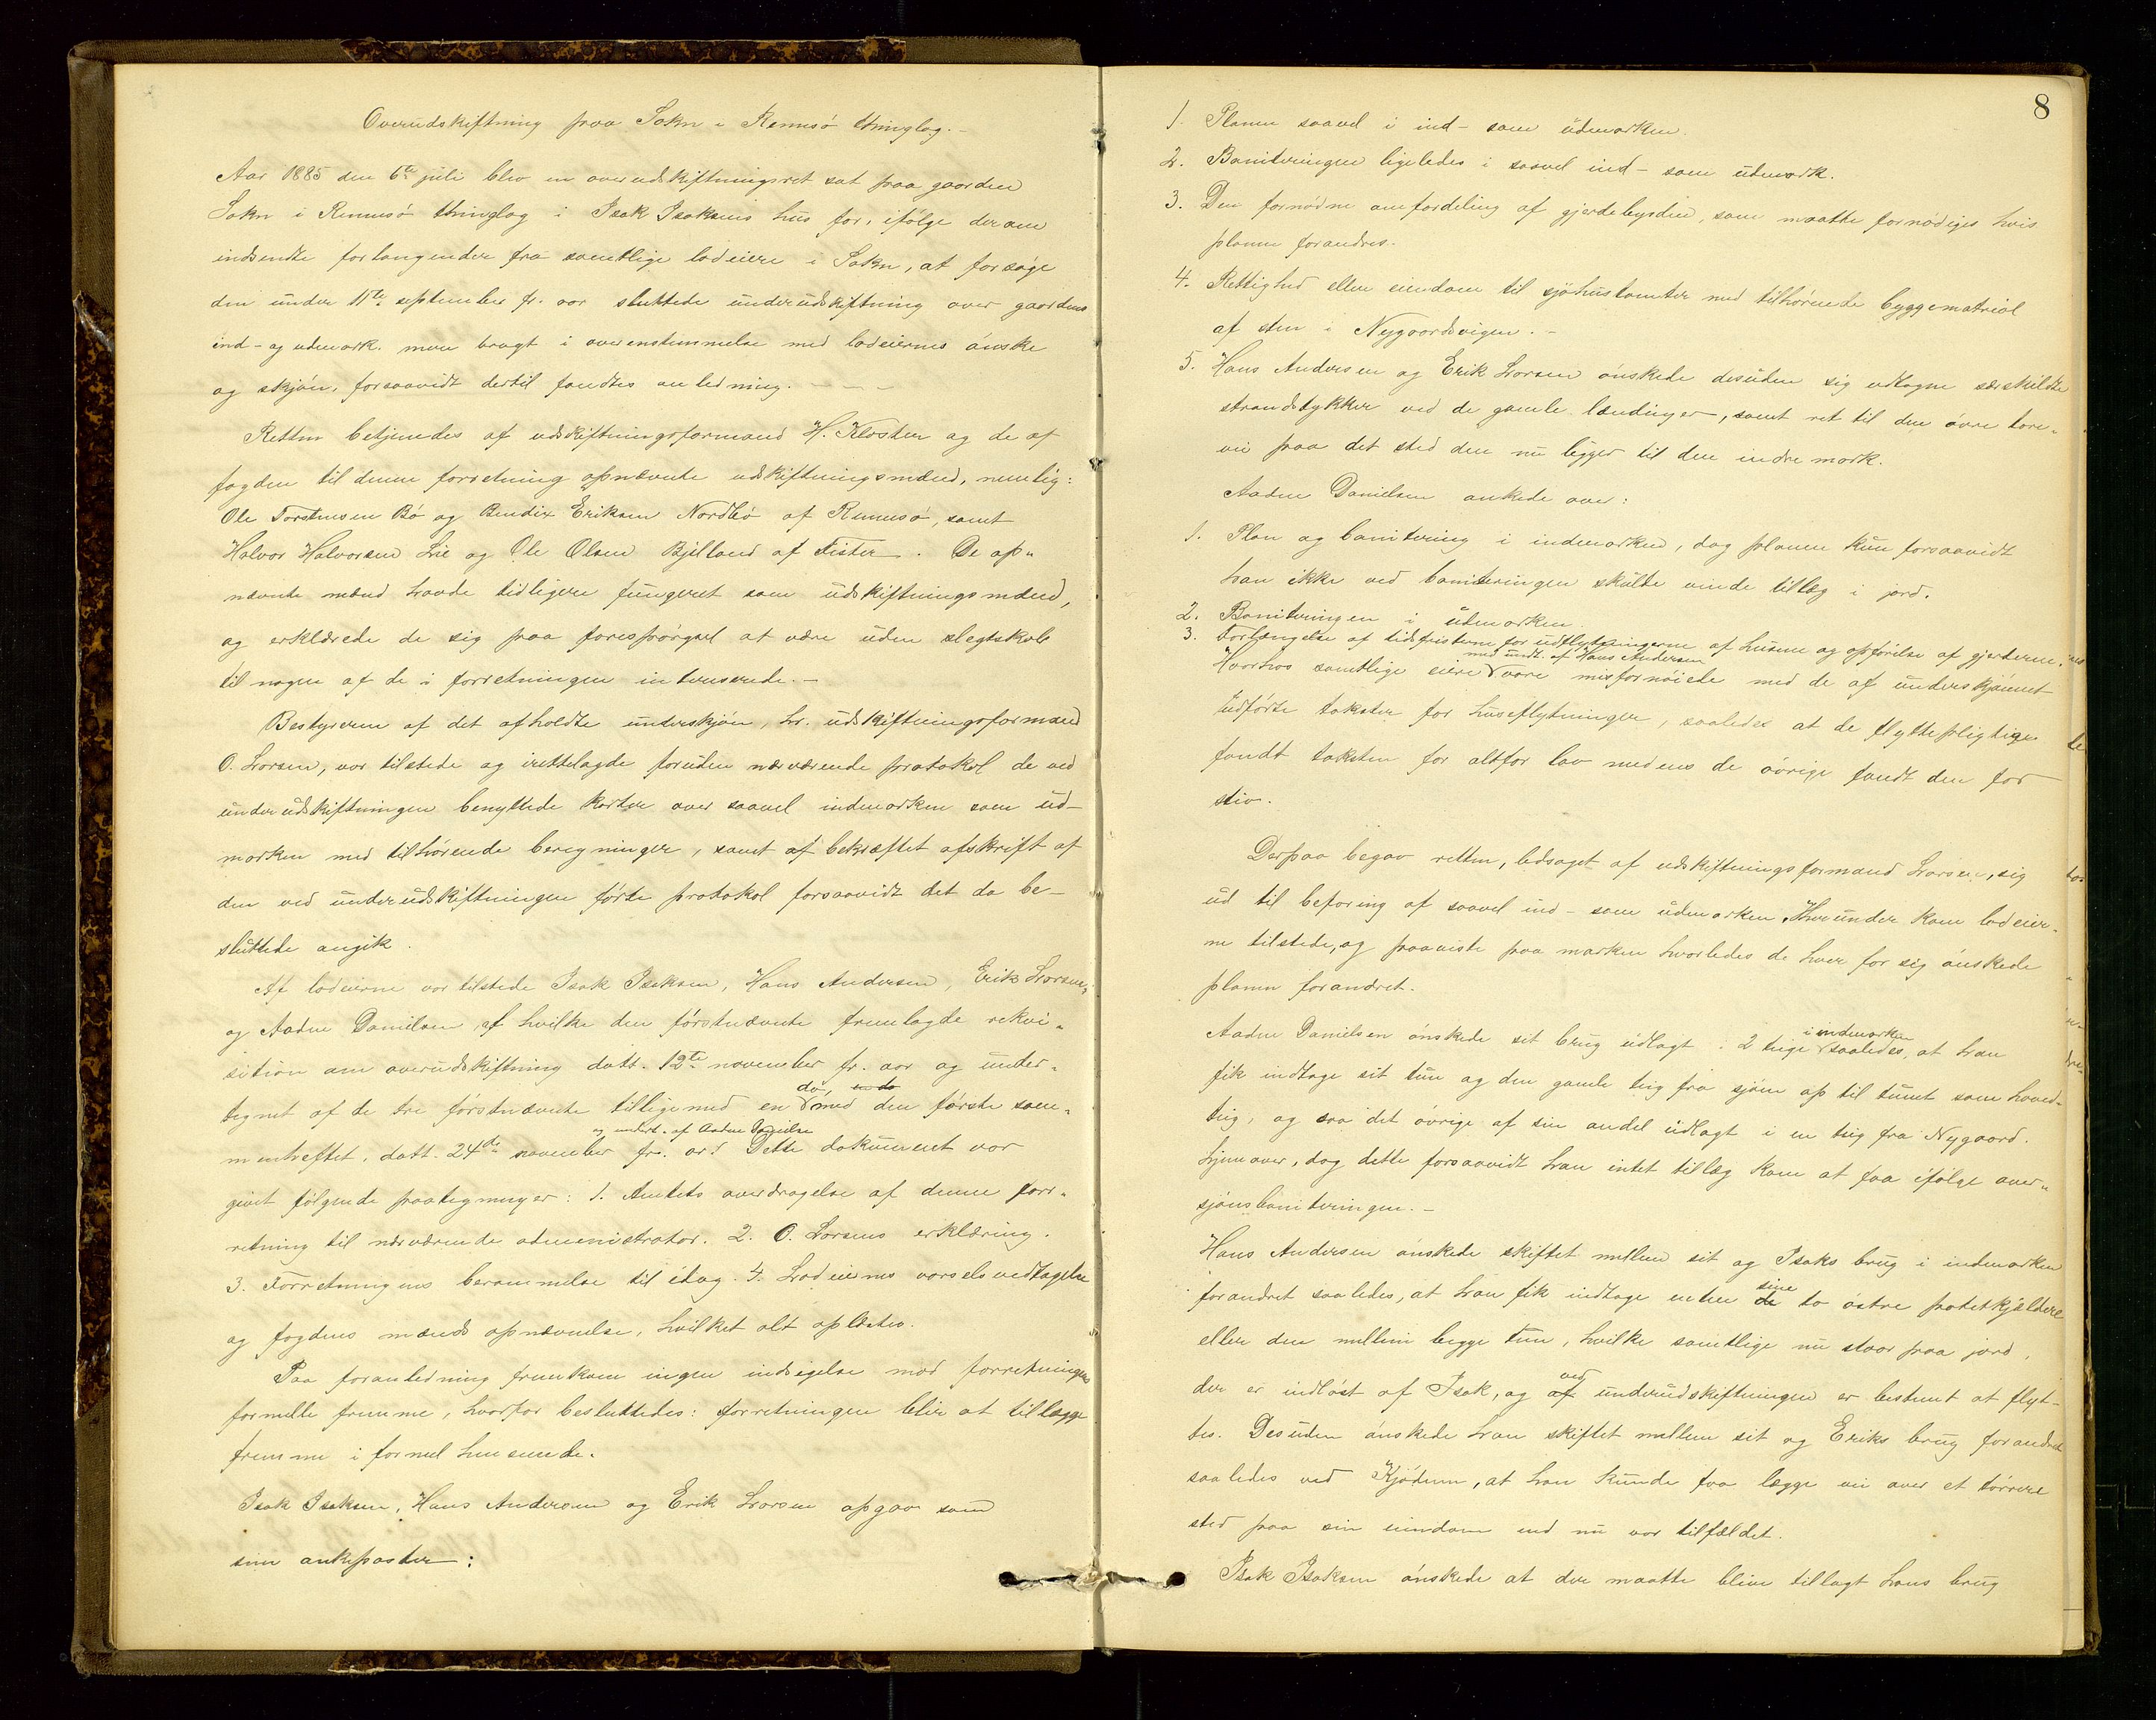 Overudskiftning paa Sokn i Rennesö thinglag.-
Aar 1885 den 6te juli blev en overudskiftningsret sat paa gaarden
Sokn i Rennesö thinglag i Isak Isaksens hus for, ifölge derom
indsendte forlangender fra samtlige lodeiere i Sokn, at forsöge
den under 11te september f. aar sluttede underudskiftning over gaardens
ind- og udmark. mere bragt i overensstemmelse med lodeiernes önske
og skjön, forsaavidt dertil fandtes anledning. - - -
Retten betjenedes af udskiftningsformand H. Kloster og de af
fogden til denne forretning opnævnte udskiftningsmænd, nemlig:
Ole Torstensen Bö og Bendix Eriksen Nordbö af Rennesö, samt
Halvor Halvorsen Lie og Ole Olsen Bjelland af Fister. De op-
nævnte mænd havde tidligere fungeret som udskiftningsmænd,
og erklærede de sig paa forespörgsel at være uden slegtskab
til nogen af de i forretningen interesserede.-
Bestyreren af det afholdte underskjön, hr. udskiftningsformand
O. Larsen, var tilstede og irettelagde foruden nærværende protokol de ved
underudskiftningen benyttede karter over saavel indmarken som ud-
marken med tilhörende beregninger, samt af bekræftet afskrift af
den ved underudskiftningen förte protokol forsaavidt det da be-
sluttede angik.
Af lodeierne var tilstede Isak Isaksen, Hans Andersen, Erik Larsen,
og Aadne Danielsen, af hvilke den förstnævnte fremlagde rekvi-
sition om overudskiftning datt. 12te november f. aar og under-
tegnet af de tre förstnævnte tilligemed en do, med den förste sam-
menheftet, datt. 24de november f. aar og undert. af Aadne Danielse. Dette dokument var
givet fölgende paategninger: 1. Amtets overdragelse af denne for-
retning til nærværende administrator. 2. O. Larsens erklæring.
3. Forretningens berammelse til idag. 4. Lodeiernes varselsvedtagelse
og fogdens mænds opnævnelse, hvilket alt oplæstes.
Paa foranledning fremkom ingen indsigelse mod forretningens
formelle fremme, hvorfor besluttedes: forretningen blir at tillægge
fremme i formel henseende.
Isak Isaksen, Hans Andersen og Erik Larsen opgav som
sine ankeposter:
8
1. Planen saavel i ind- som udmarken.
2. Boniteringen ligeledes i saavel ind- som udmark.
3. Den fornödne omfordeling af gjerdebyrden, som maatte fornödiges hvis
planen forandres.
4. Rettighed eller eiendom til sjöhustomter med tilhörende byggematrial
af sten i Nygaardsvigen.-
5. Hans Andersen og Erik Larsen önskede desuden sig udtagne særskildte
strandstykker ved de gamle lændinger, samt ret til den övre tare-
vei paa det sted den nu ligger til den indre mark.
Aadne Danielsen ankede over:
1. Plan og bonitering i indmarken, dog planen kun forsaavidt
han ikke ved boniteringen skulde vinde tillæg i jord.
2. Boniteringen i udmarken.
3. Forlængelse af tidsfristerne for udflytningerne af husene og opförelse af gjerderne.
Hvorhos samtlige eiere med undt. af Hans Andersen vare misfornöiede med de af underskjönnet
udförte takster for huseflytninger, saaledes at de flyttepligtige
fandt taksten for altfor lav medens de övrige fandt den for
stiv.
Derpaa begav retten, ledsaget af udskiftningsformand Larsen, sig
ud til befaring af saavel ind- som udmarken. Herunder kom lodeier-
ne tilstede, og paaviste paa marken hvorledes de hver for sig önskede
planen forandret.
Aadne Danielsen önskede sit brug udlagt i 2 teige i indmarken saaledes, at han
fik indtage sit tun og den gamle teig fra sjöen op til tunet som hoved-
teig, og saa det övrige af sin andel udlagt i en teig fra Nygaard.
hjemover, dog dette forsaavidt han intet tillæg kom at faa ifölge over-
sjönsboniteringen.-
Hans Andersen önskede skiftet mellem sit og Isaks brug i indmarken
forandret saaledes, at han fik indtage enten sine to östre potetkjældere
eller den mellem begge tun, hvilke samtlige nu staar paa jord,
der er indlöst af Isak, og ved underudskiftningen er bestemt at flyt-
tes. Desuden önskede han skiftet mellem sit og Eriks brug forandret
saaledes ved Kjödnen, at han kunde faa lægge vei over et törrere
sted paa sin eiendom end nu var tilfældet.
Isak Isaksen önskede at der maatte blive tillagt hans brug